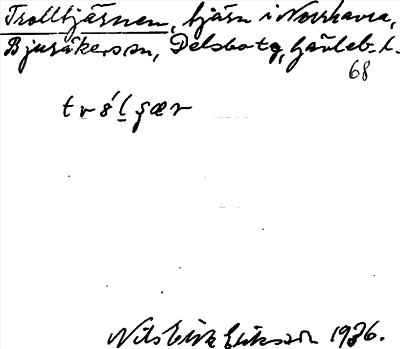 Trolltjärnen, tjärn i Norrhavra,
Bjuråkers sn, Delsbo tg, Gävleb. l.
68
Nils Eirik Eriksson 1936.